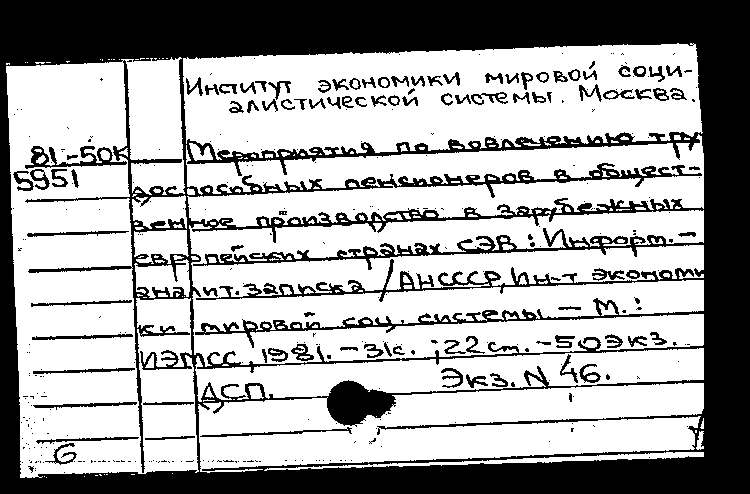 Институт экономики мировой соци-
алистической системы. Москва.
81-50К Мероприятия по вовлечению тру-
5951 доспособных пенсионеров в общест-
венное производство в зарубежных
европейских странах СЭВ: Информ.-
аналит. записка / АН СССР, Ин-т экономи
ки мировой соц. системы. - М.:
ИЭМСС, 1981. - 31с. ; 22 см. - 50 экз.
ДСП. Экз. N 46.
6